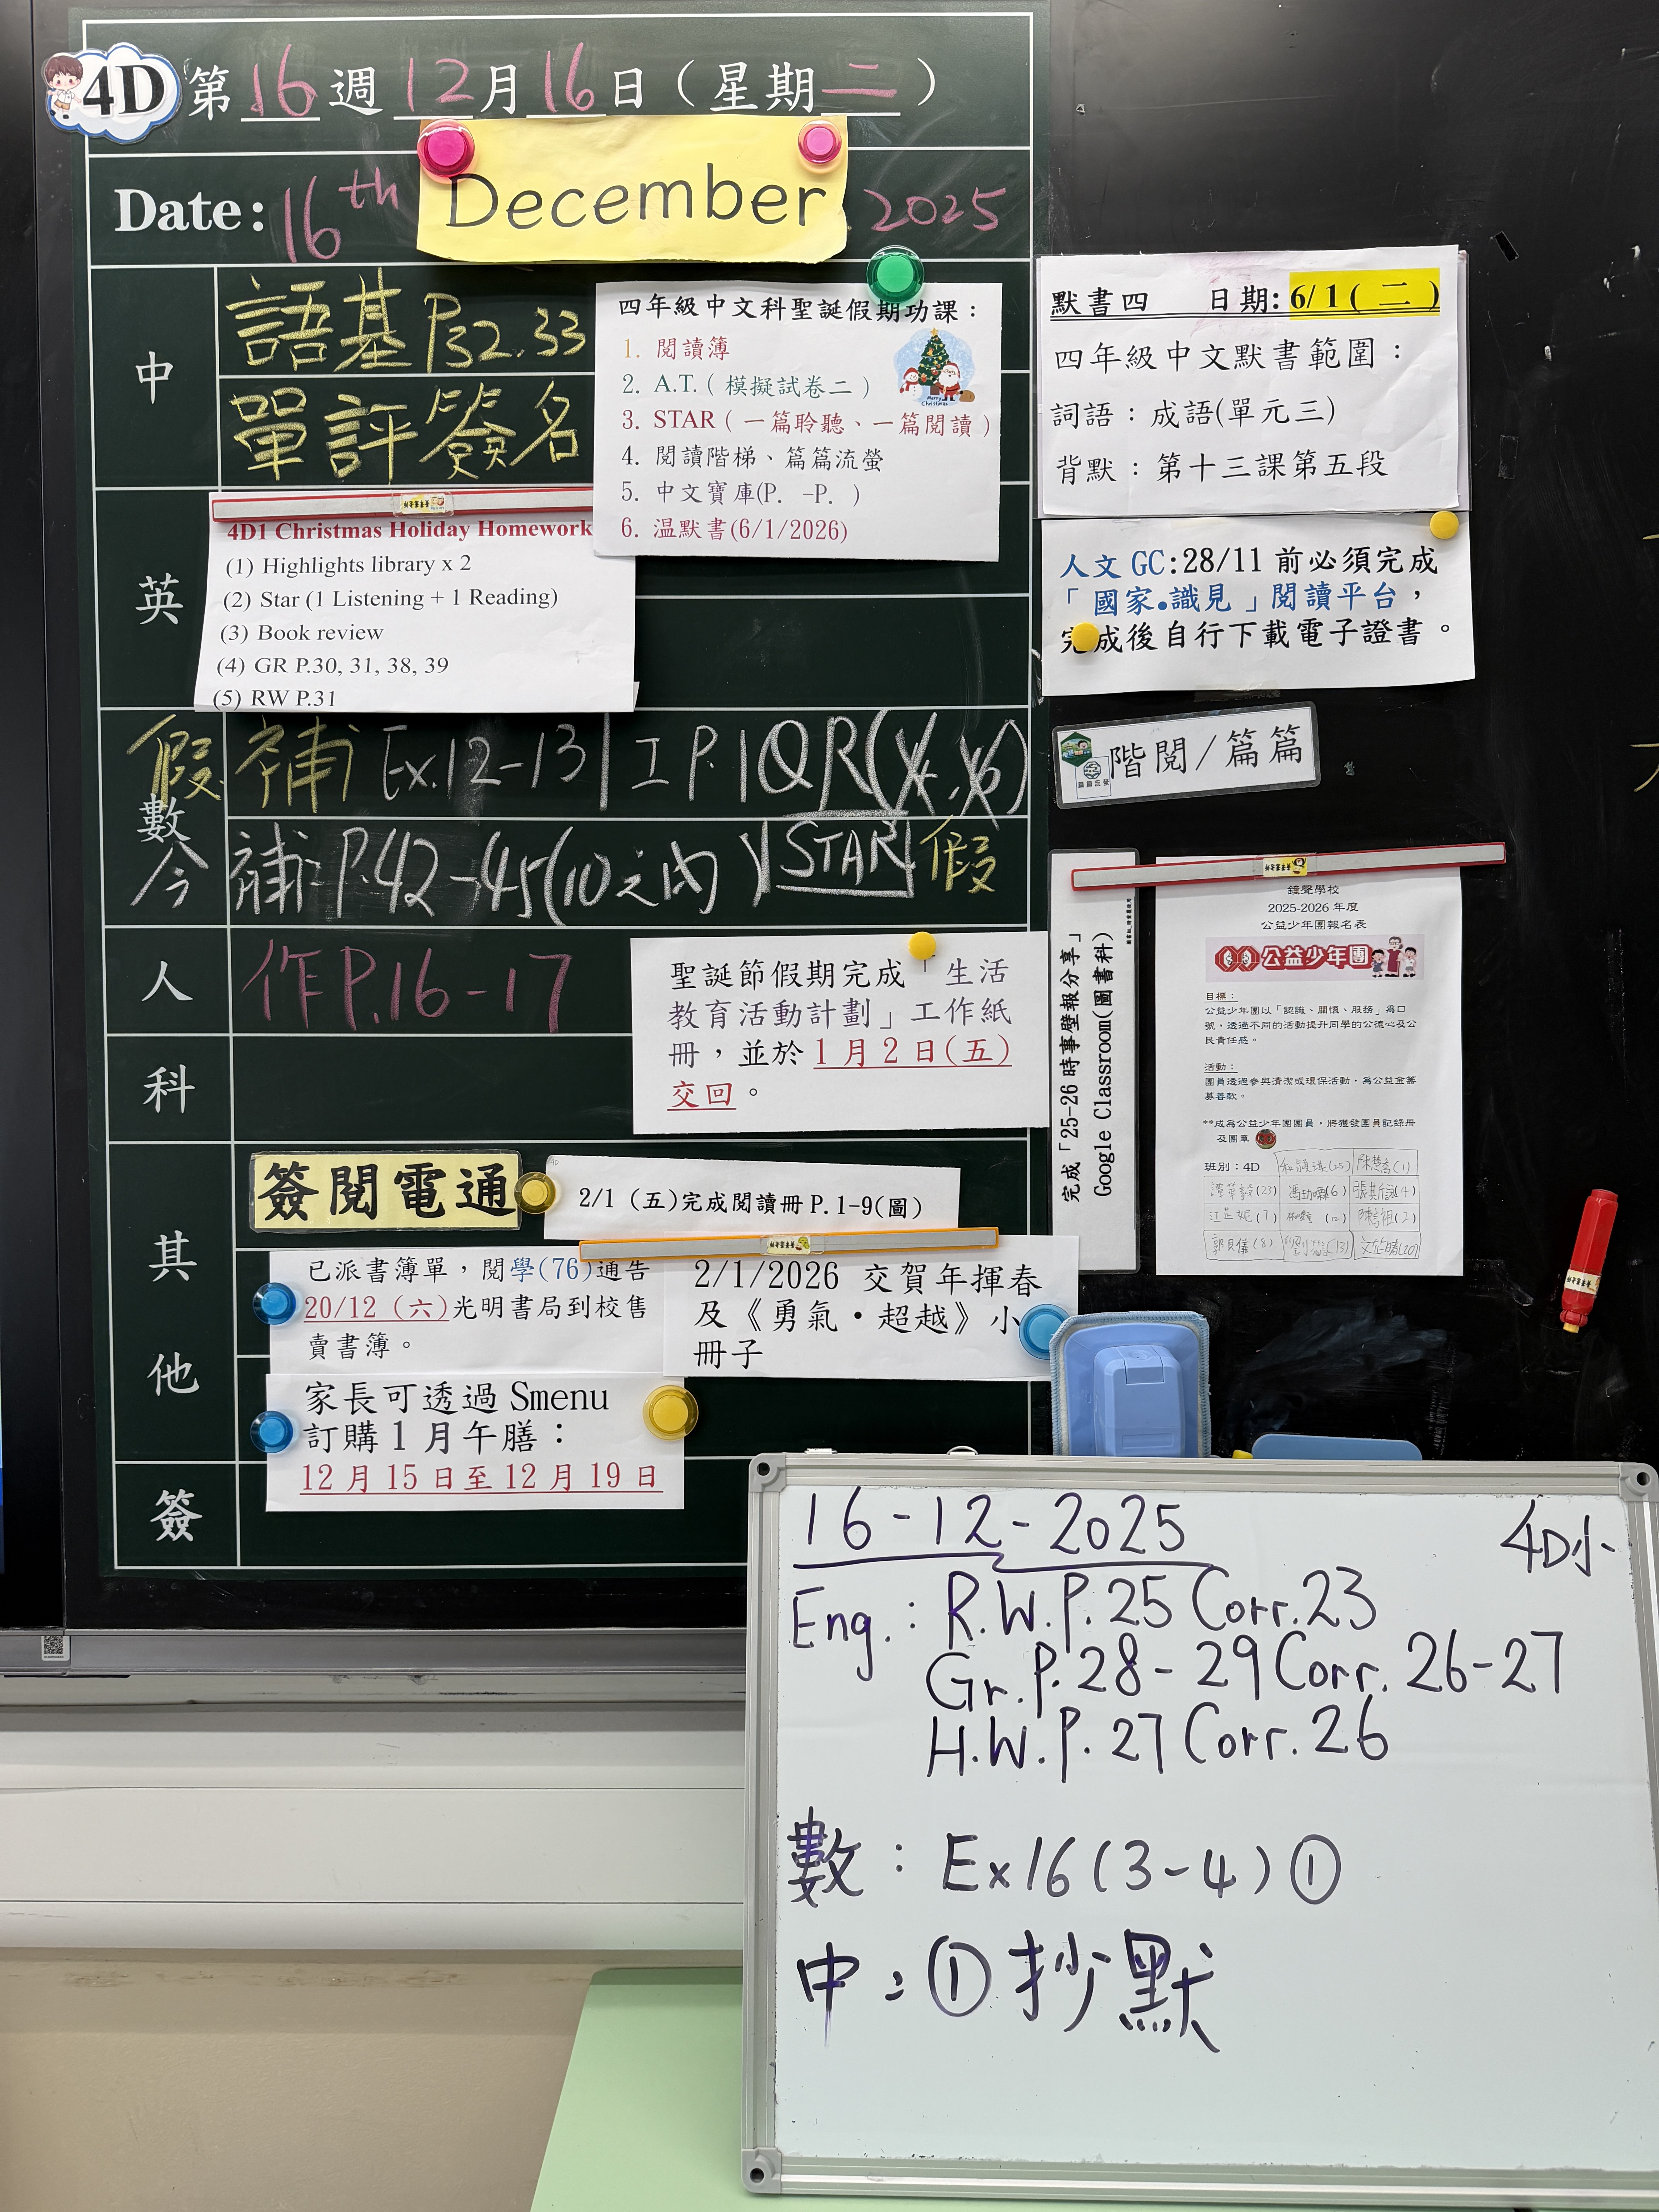 4D 第16週12月16日（星期二）
Date: 16th December 2025
中
語基P32.33
單評簽名
四年級中文科聖誕假期功課：
1. 閱讀簿
2. A.T.（模擬試卷二）
3. STAR（一篇聆聽、一篇閱讀）
4. 閱讀階梯、篇篇流螢
5. 中文寶庫(P. -P. )
6. 温默書(6/1/2026)
英
4D1 Christmas Holiday Homework
(1) Highlights library x 2
(2) Star (1 Listening + 1 Reading)
(3) Book review
(4) GR P.30, 31, 38, 39
(5) RW P.31
數
假 補 Ex.12-13 | 工P.1 QR
今 補 P.42-45(10之內) STAR 假
人
作P.16-17
聖誕節假期完成「生活
教育活動計劃」工作紙
冊，並於1月2日(五)
交回。
科
其他
簽閱電通
2/1（五)完成閱讀冊P.1-9(圖)
已派書簿單，閱學(76)通告
20/12（六)光明書局到校售
賣書簿。
2/1/2026 交賀年揮春
及《勇氣·超越》小
冊子
家長可透過Smenu
訂購1月午膳：
12月15日至12月19日
簽
默書四 日期:6/1(二)
四年級中文默書範圍：
詞語：成語(單元三)
背默：第十三課第五段
人文GC:28/11前必須完成
「國家•識見」閱讀平台，
完成後自行下載電子證書。
階閱/篇篇
完成「25-26時事壁報分享」
Google Classroom(圖書科)
鐘聲學校
2025-2026年度
公益少年團報名表
公益少年團
目標：
公益少年團以「認識、關懷、服務」為口
號，透過不同的活動提升同學的公德心及公
民責任感。
活動：
團員透過參與清潔或環保活動，為公益金籌
募善款。
**成為公益少年團團員，將獲發團員記錄冊
及團章
班別：4D
16-12-2025 4D小
Eng.: R.W.P.25 Corr.23
Gr.P.28-29 Corr.26-27
H.W.P.27 Corr.26
數：Ex16(3-4)①
中：①抄默